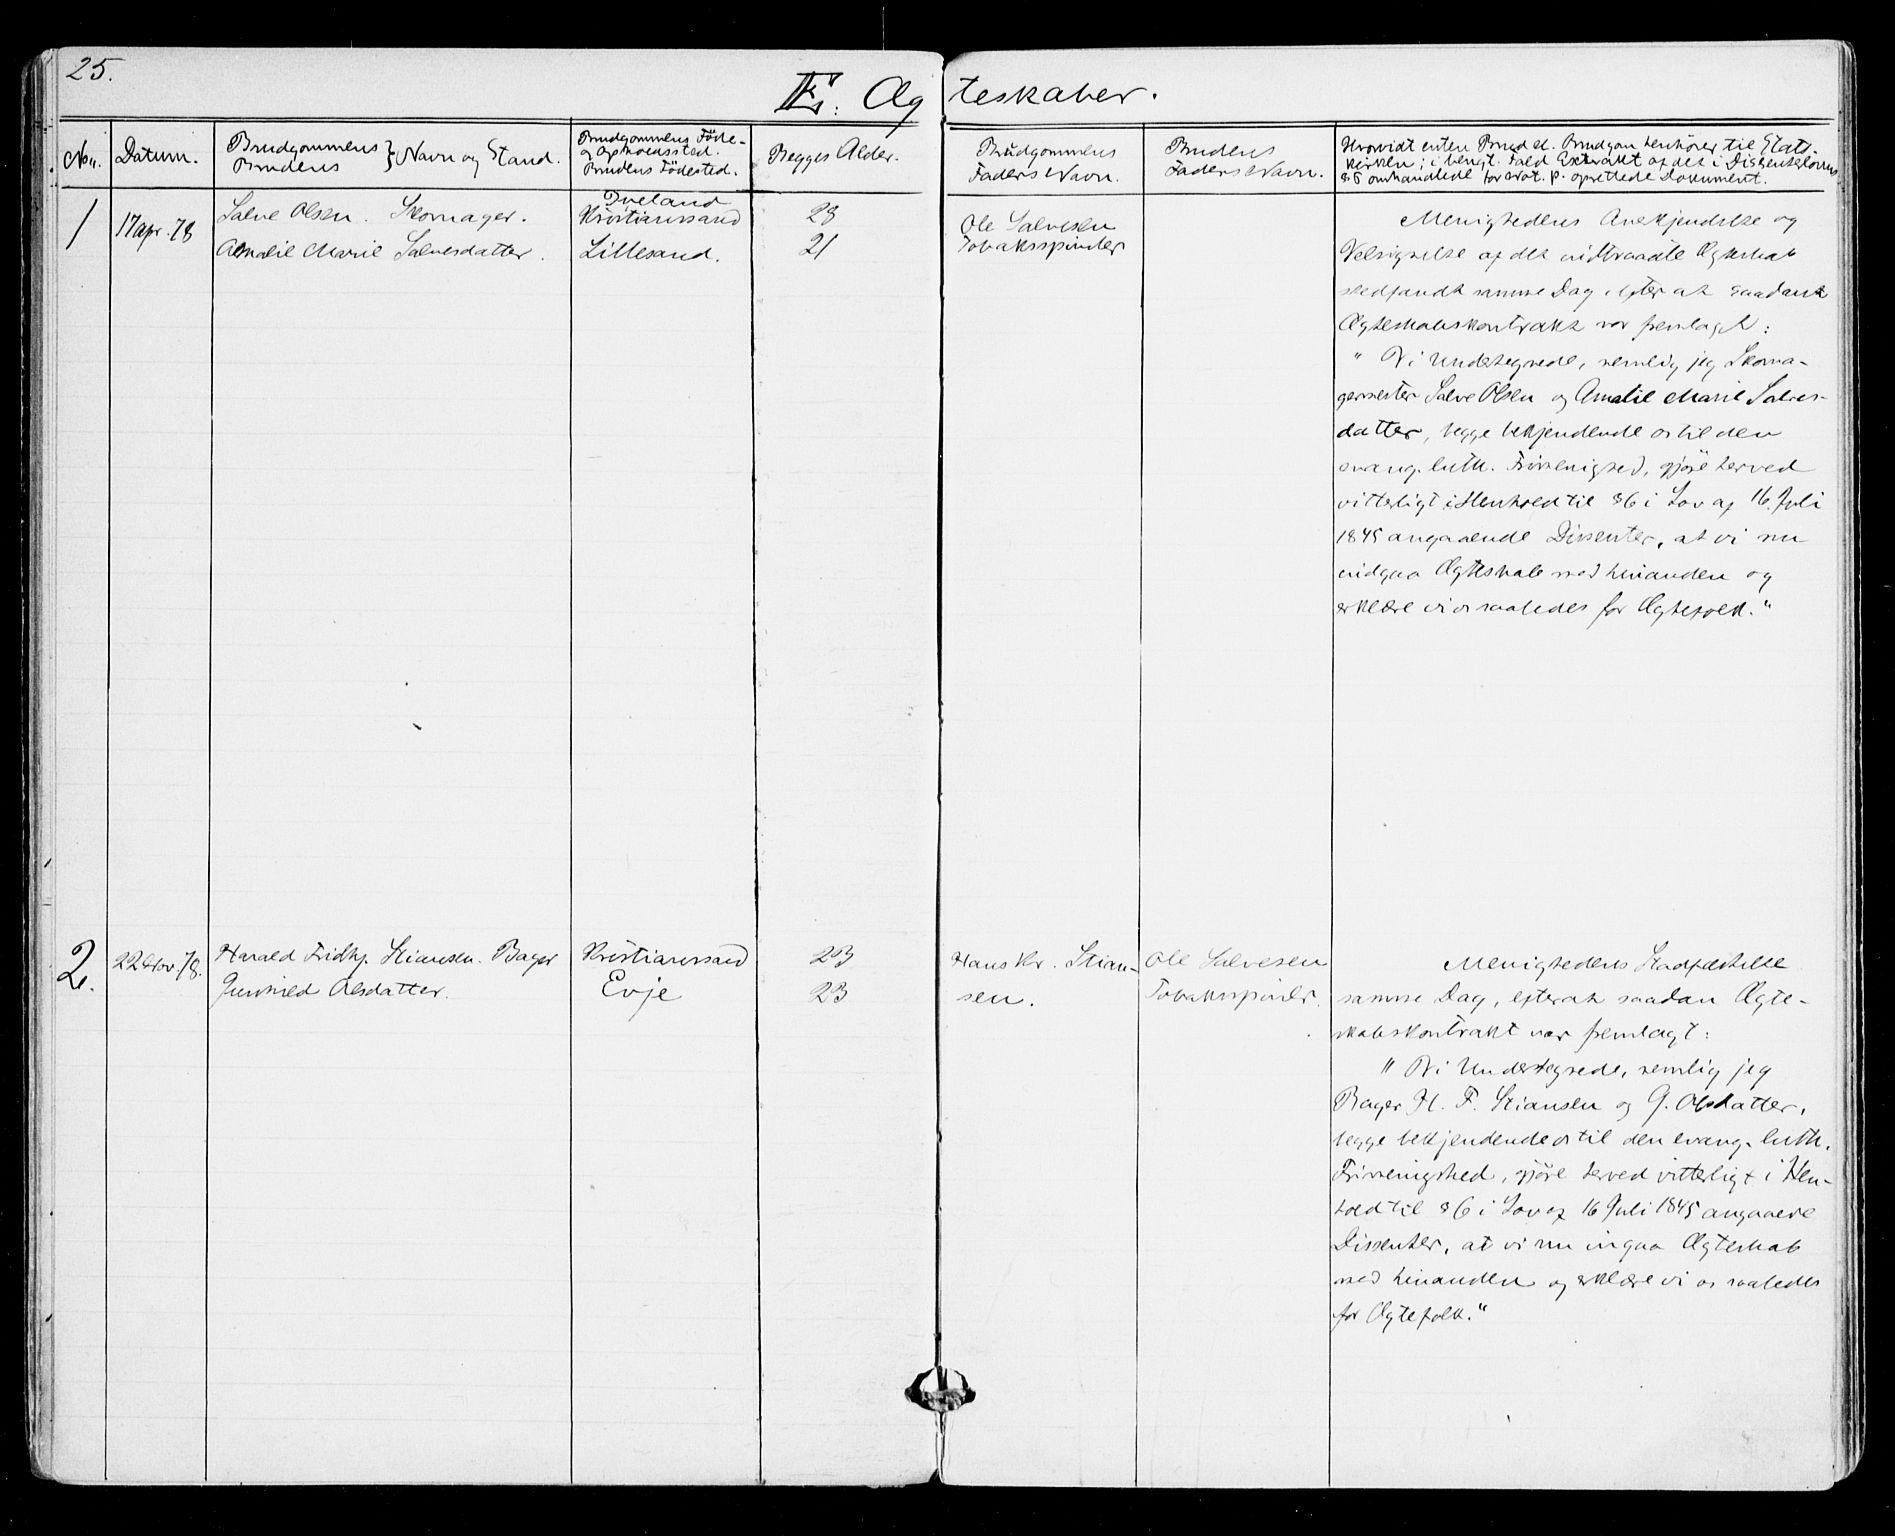 25.
E. Ægteskaber.
No.
Datum.
Brudgommens } Navn og Stand.
Brudens
Brudgommens Föde-
og Opholdssted.
Brudens Födested.
Begges Alder.
Brudgommens
Faders Navn.
Brudens
Faders Navn.
Hvorvidt enten Brud el. Brudgom henhører til Stats-
kirken; i benægt. Fald Extrakt af det i Dissenterlovens
§ omhandlede for Not. p. oprettede Dokument.
1
17 apr. 78
Salve Olsen. Skomager.
Amalie Marie Salvesdatter.
Iveland
Kristianssand
Lillesand.
28
21
Ole Salvesen
Tobaksspinder
Menighedens Anerkjendelse og
Velsignelse af det indtraadte Ægteskab
stedfandt samme Dag, efter at saadant
Ægteskabskontrakt var fremlagt:
" Vi Undertegnede, nemlig jeg Skoma-
germester Salve Olsen og Amalie Marie Salves-
datter, begge bekjendende os til den
evang. luth. Frimenighed, gjöre herved
vitterligt i Henhold til § 6 i Lov af 16. Juli
1845 angaaende Dissenter, at vi nu
indgaa Ægteskab med hinanden og
erklære vi os saaledes for Ægtefolk."
2.
22 Nov. 78.
Harald Fridtj. Stiansen. Bager
Gunhild Olsdatter.
Kristianssand
Evje
23
23
Hans Kr. Stian-
sen.
Ole Salvesen
Tobaksspinder.
Menighedens Stadfæstelse
samme Dag, efterat saadan Ægte-
skabskontrakt var fremlagt:
" Vi Undertegnede, nemlig jeg
Bager H. F. Stiansen og G. Olsdatter,
begge bekjendende os til den evang. luth.
Frimenighed, gjöre herved vitterligt i Hen-
hold til § 6 i Lov af 16 Juli 1845 angaaende
Dissenter, at vi nu ingaa Ægteskab
med hinanden og erklære vi os saaledes
for Ægtefolk."